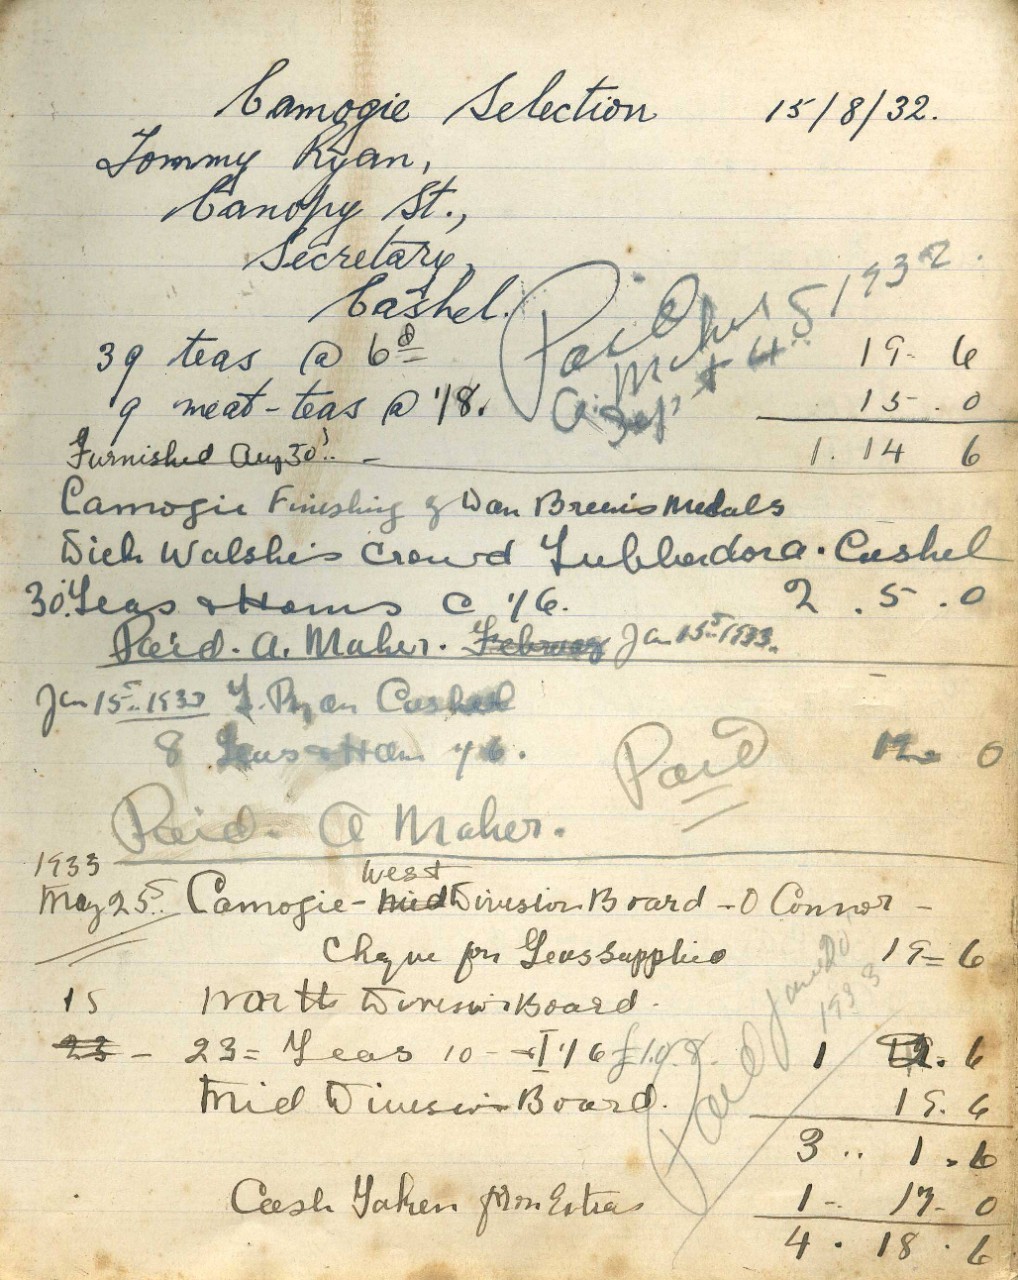 Camogie Selection 15/8/32.
Tommy Ryan,
Canopy St.,
Secretary,
Cashel.
Paid 1932.
A. Maher
Sep
39 teas @ 6d 19 - 6
9 meat-teas @ 1/8. 15 . 0
Furnished Aug 30 1 . 14 6
Camogie Finishing of Dan Breens Medals
Dick Walshe's Crowd Tubberdora. Cashel
30 Teas & Hams @ 1/6. 2 . 5 . 0
Paid. A. Maher. February Jan 15th 1933.
Jan 15th 1933 T. Ryan Cashel
8 Teas & Ham 1/6. 12 - 0
Paid
Paid - A Maher.
1933
May 25th Camogie - Mid West Division Board - O Connor -
Cheque for Teas supplied 19 = 6
15 North Division Board.
23 - 23 = Teas 10 - 1/6 1 . 6
Mid Division Board. 19 . 6
Paid
1933
3 .. 1 . 6
Cash Taken from Extras 1 - 17 - 0
4 . 18 . 6